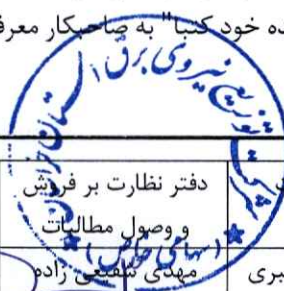 ده خود کتبا" به صاحبکار معرف
شرکت توزیع نیروی برق استان
(سهامی خاص)
دفتر نظارت بر فروش
و وصول مطالبات
بری
مهدی شفیعی زاده